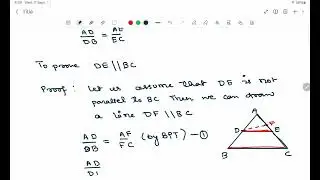 Title
AD/DB = AE/EC
To prove DE || BC
Proof: Let us assume that DE is not
parallel to BC. Then we can draw
a line DF || BC
AD/DB = AF/FC (by BPT) — ①
AD/D
A
D F E
B C